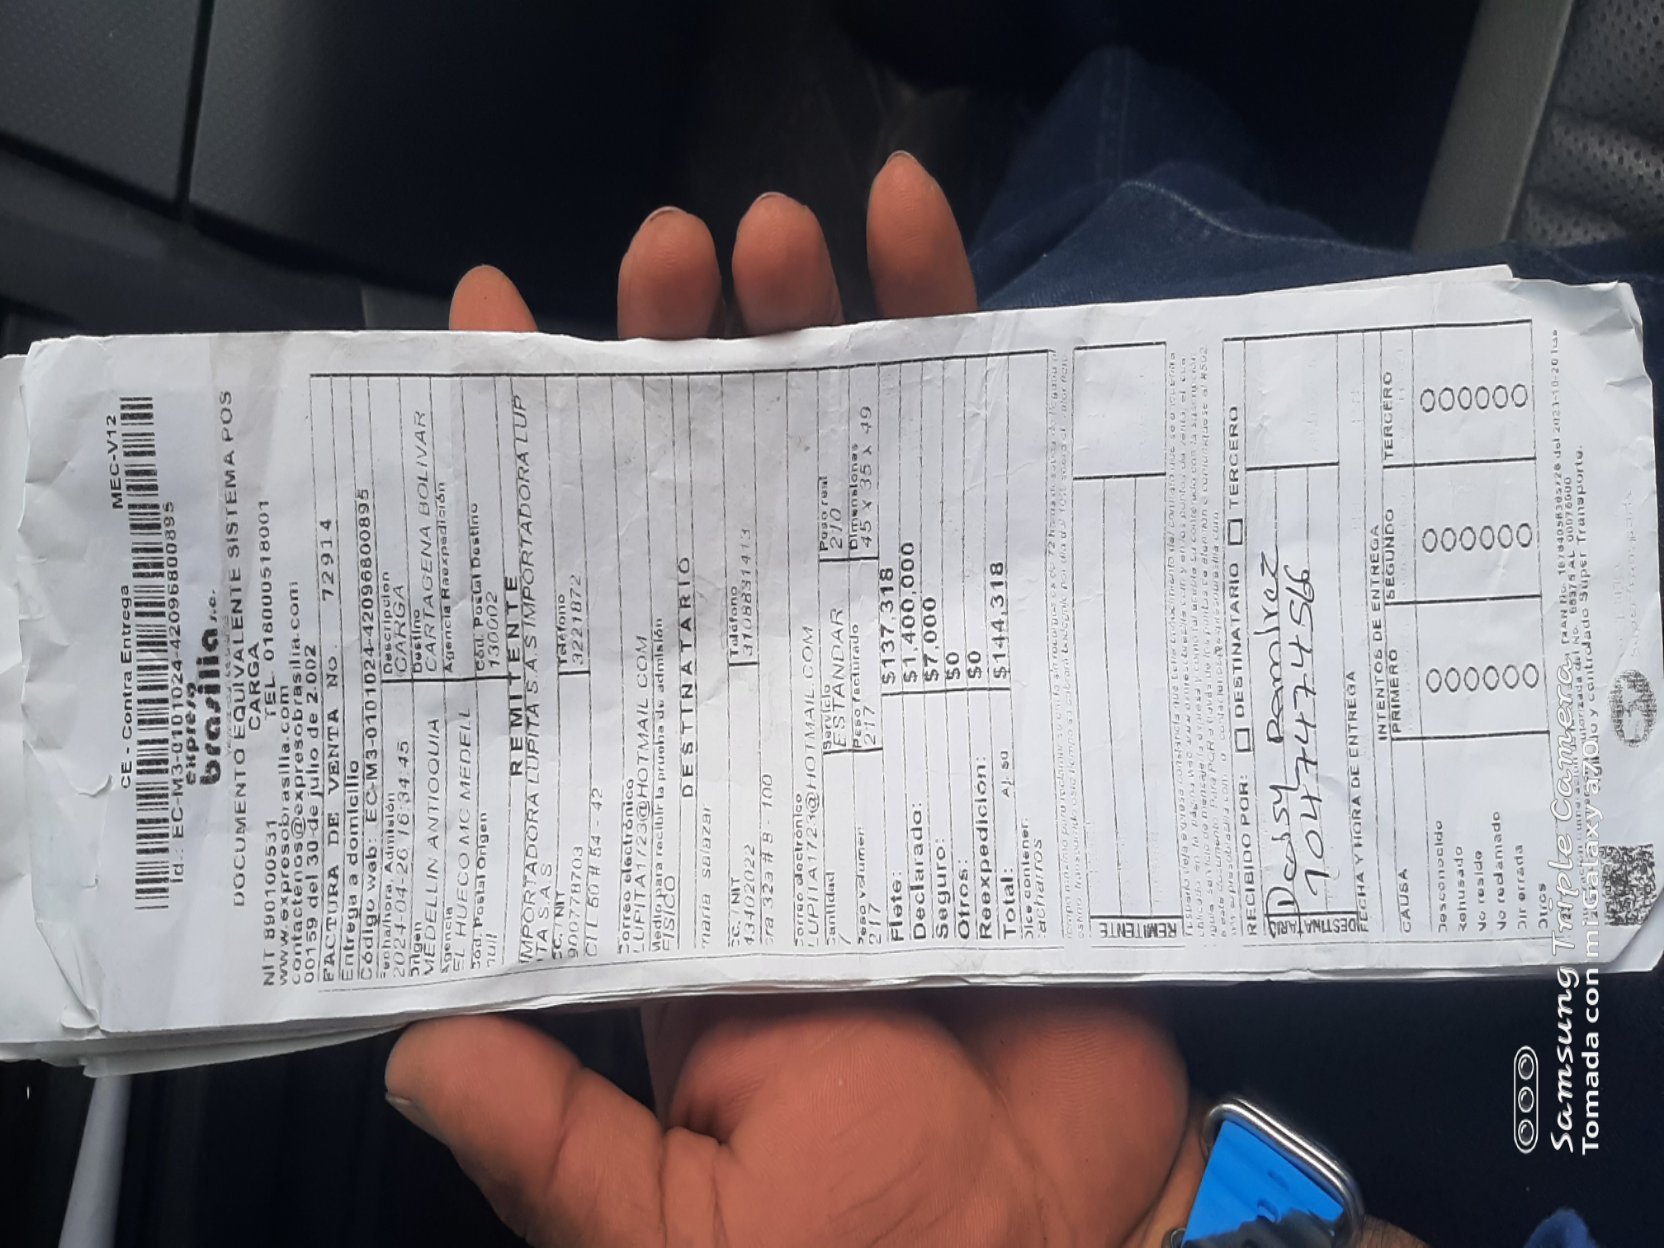 CE - Contra Entrega MEC-V12
Id.: EC-M3-0101024-42096800895
expreso
brasilia s.a.
DOCUMENTO EQUIVALENTE SISTEMA POS
CARGA
NIT 890100531 TEL 018000518001
www.expresobrasilia.com
contactenos@expresobrasilia.com
00159 del 30 de julio de 2.002
FACTURA DE VENTA No. 72914
Entrega a domicilio
Código web: EC-M3-0101024-42096800895
Fecha/hora Admisión Descripcion
2024-04-26 16:34:45 CARGA
Origen Destino
MEDELLIN ANTIOQUIA CARTAGENA BOLIVAR
Agencia Agencia Reexpedición
EL HUECO MC MEDELL
Cód. Postal Origen Cód. Postal Destino
null 130002
REMITENTE
IMPORTADORA LUPITA S.A.S IMPORTADORA LUP
ITA S.A.S
CC/NIT Teléfono
900778703 3221872
CLL 50 # 54 - 42
Correo electrónico
LUPITA1723@HOTMAIL.COM
Medio para recibir la prueba de admisión
FISICO
DESTINATARIO
maria salazar
CC/NIT Teléfono
43402022 3108831413
cra 32a # 8 - 100
Correo electronico
LUPITA1723@HOTMAIL.COM
Cantidad Servicio Peso real
7 ESTANDAR 210
Peso volumen Peso facturado Dimensiones
217 217 45 x 35 x 49
Flete: $137,318
Declarado: $1,400,000
Seguro: $7,000
Otros: $0
Reexpedicion: $0
Total: $144,318
Dice contener:
cacharros
REMITENTE
RECIBIDO POR: DESTINATARIO TERCERO
DESTINATARIO
Deisy Ramirez
1047474566
FECHA Y HORA DE ENTREGA
INTENTOS DE ENTREGA
CAUSA PRIMERO SEGUNDO TERCERO
Desconocido
Rehusado
No reside
No reclamado
Dir errada
Otros
Vigilado y controlado Super Transporte.
Samsung Triple Camera
Tomada con mi Galaxy a70